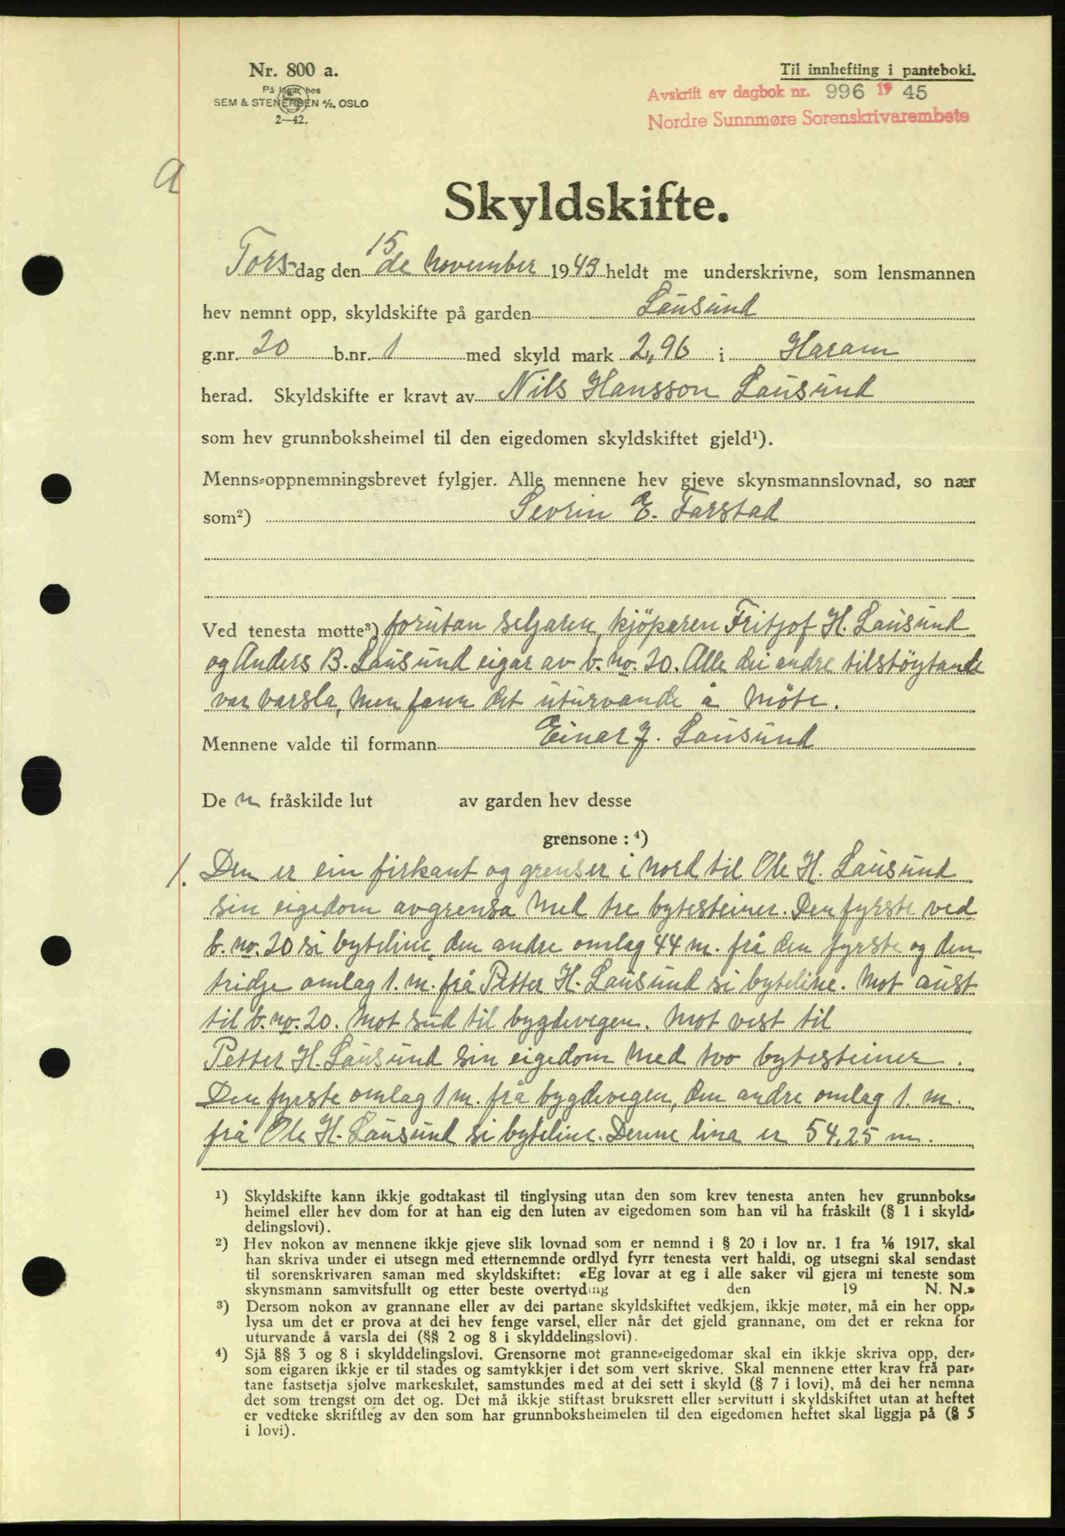 Nr. 800 a.
På lager hos
SEM & STENERSEN A/S, OSLO
2—42.
Til innhefting i panteboki.
Avskrift av dagbok nr. 996 1945
Nordre Sunnmøre Sorenskrivarembete
a
Skyldskifte.
Torsdag den 15de November 1945 heldt me underskrivne, som lensmannen
hev nemnt opp, skyldskifte på garden Lausund
g.nr. 20 b.nr. 1 med skyld mark 2,96 i Haram
herad. Skyldskifte er kravt av Nils Hansson Lausund
som hev grunnboksheimel til den eigedomen skyldskiftet gjeld¹).
Menns-oppnemningsbrevet fylgjer. Alle mennene hev gjeve skynsmannslovnad, so nær
som²) Sevrin E. Farstad
Ved tenesta møtte³) forutan seljaren, kjöparen Fritjof H. Lausund
og Anders B. Lausund eigar av b.no. 20. Alle dei andre tilstöytande
var varsla, men fann det uturvande å möte.
Mennene valde til formann Einar J. Lausund
De n fråskilde lut av garden hev desse
grensone : ⁴)
1. Den er ein firkant og grenser i nord til Ole H. Lausund
sin eigedom avgrensa med tre bytesteiner. Den fyrste ved
b.no. 20 si byteline, den andre omlag 44 m. frå den fyrste og den
tridje omlag 1. m. frå Petter H. Lausund si byteline. Mot aust
til b.no. 20. Mot sud til bygdevegen. Mot vest til
Petter H. Lausund sin eigedom med tvo bytesteiner.
Den fyrste omlag 1 m. frå bygdevegen, den andre omlag 1. m.
frå Ole H. Lausund si byteline. Denne lina er 54,25 m.
¹) Skyldskifte kann ikkje godtakast til tinglysing utan den som krev tenesta anten hev grunnboks-
heimel eller hev dom for at han eig den luten av eigedomen som han vil ha fråskilt (§ 1 i skyld-
delingslovi).
²) Hev nokon av mennene ikkje gjeve slik lovnad som er nemnd i § 20 i lov nr. 1 fra 1/6 1917, skal
han skriva under ei utsegn med etternemnde ordlyd fyrr tenesta vert haldi, og utsegni skal sendast
til sorenskrivaren saman med skyldskiftet: «Eg lovar at eg i alle saker vil gjera mi teneste som
skynsmann samvitsfullt og etter beste overtyding den 19 N. N.»
³) Dersom nokon av grannane eller av dei partane skyldskiftet vedkjem, ikkje møter, må ein her opp-
lysa um det er prova at dei hev fenge varsel, eller når det gjeld grannane, om det er rekna for
uturvande å varsla dei (§§ 2 og 8 i skylddelingslovi).
⁴) Sjå §§ 3 og 8 i skylddelingslovi. Grensorne mot granne-eigedomar skal ein ikkje skriva opp, der-
som eigaren ikkje er til stades og samtykkjer i det som vert skrive. Skal mennene etter krav frå par-
tane fastsetja sjølve markeskilet, samstundes med at dei sett i skyld (§ 7 i lovi), må dei her nemna
det som trengst om det og. Det må ikkje stiftast bruksrett eller servitutt i skyldskiftet utan at heftet
er vedteke skriftleg av den som har grunnboksheimelen til den eigedomen heftet skal liggja på (§ 5
i lovi).